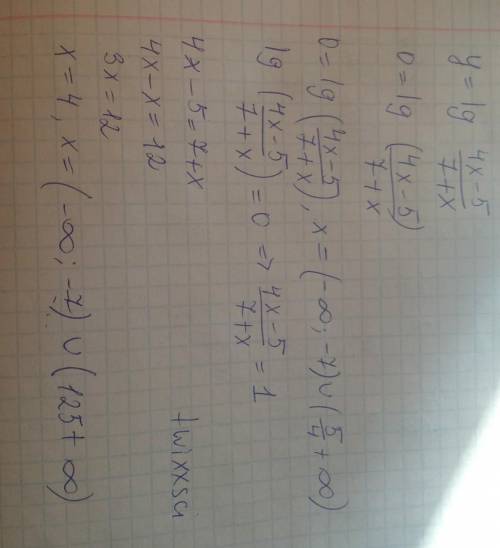 y = lg (4x-5)/(7+x)
0 = lg ((4x-5)/(7+x))
0 = lg ((4x-5)/(7+x)), x = (-∞; -7) ∪ (5/4 + ∞)
lg ((4x-5)/(7+x)) = 0 => (4x-5)/(7+x) = 1
4x - 5 = 7+x
4x - x = 12
3x = 12
x = 4, x = (-∞; -7) ∪ (125 + ∞)
+wixxsci